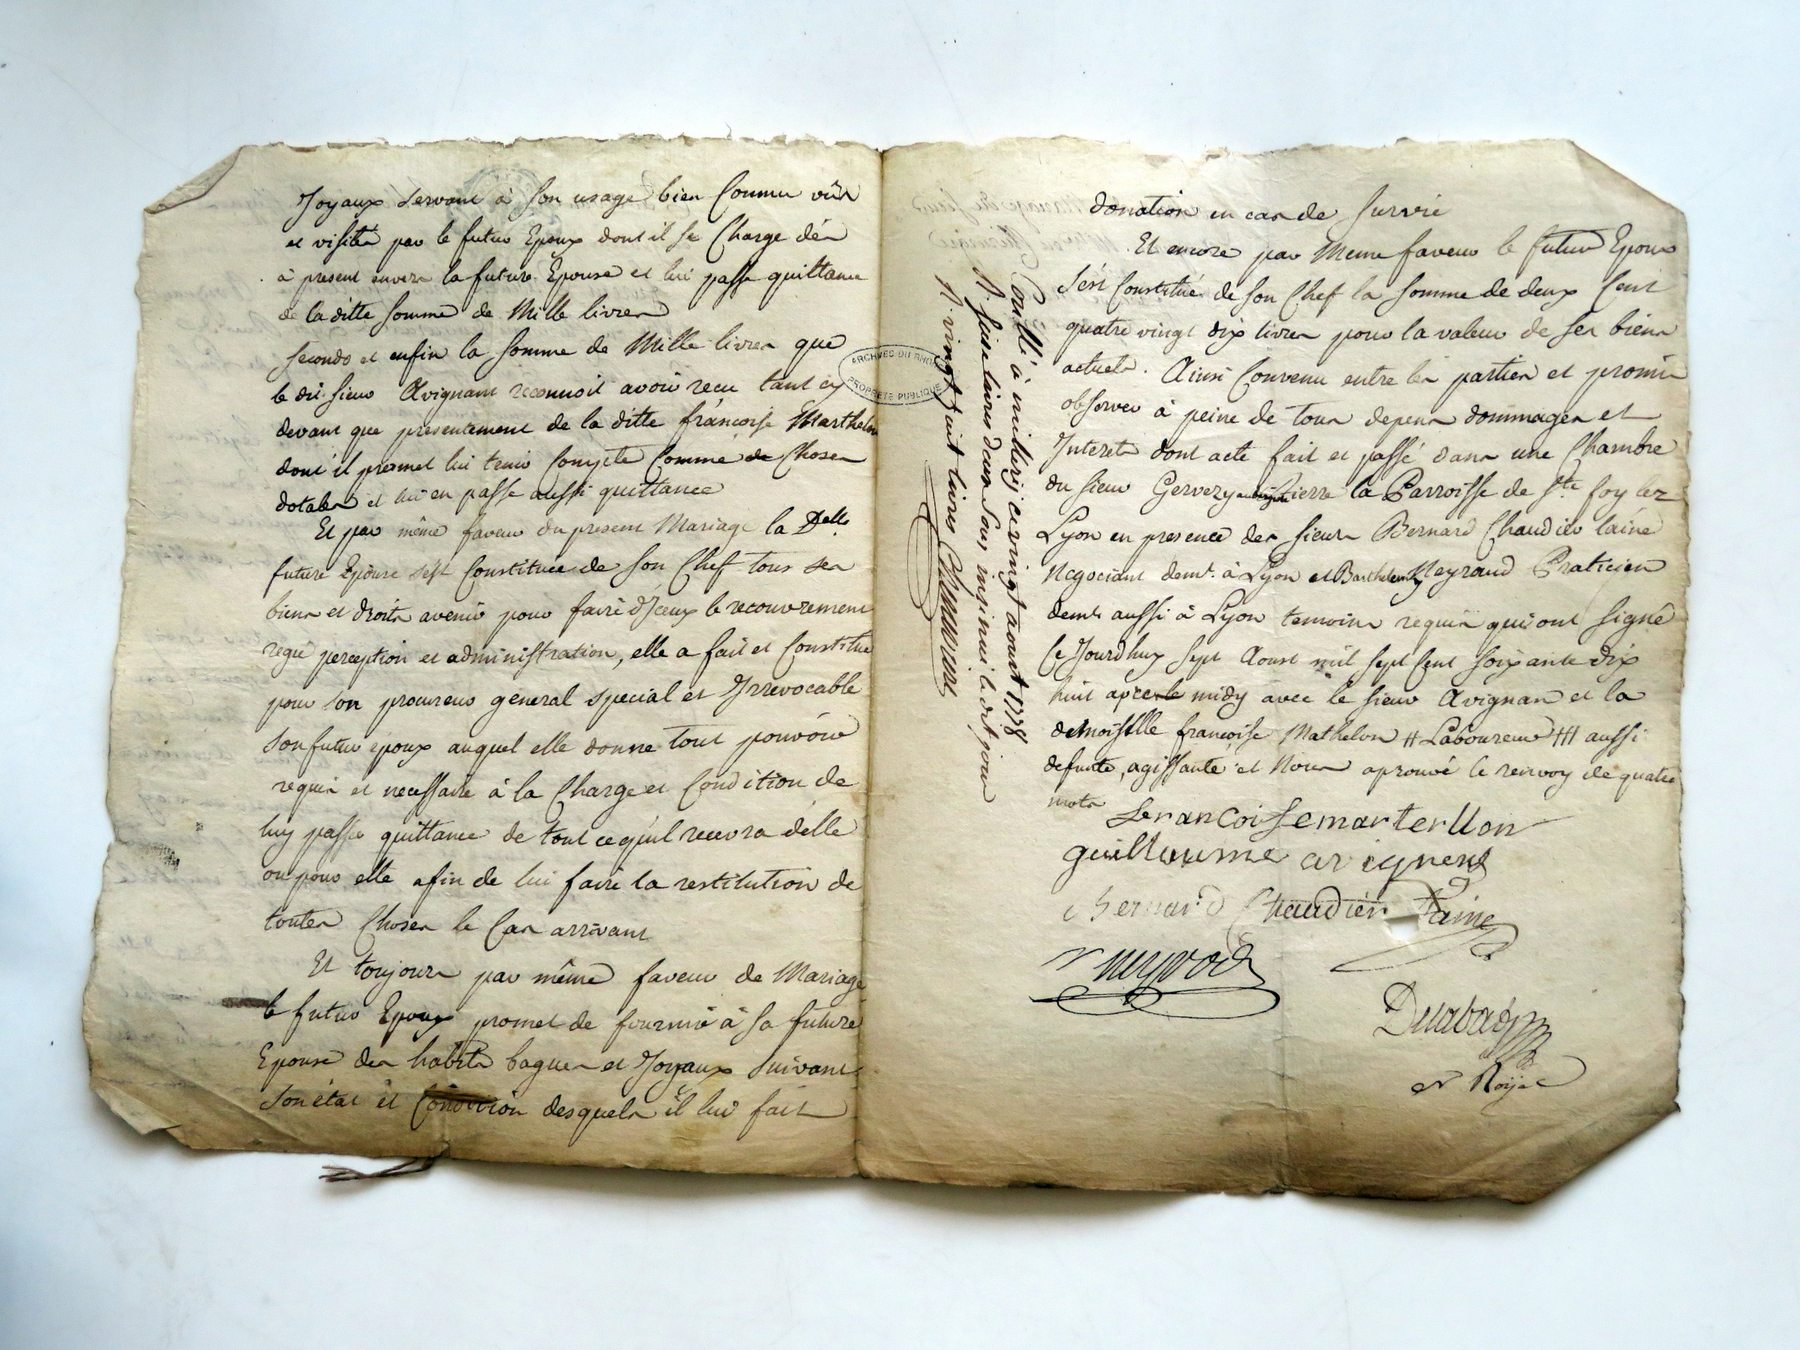 Joyaux servant à son usage bien Connu vûs
et visités par le futur Epoux dont il se Charge dés
à present envers la future Epouse et lui passe quittance
de la ditte somme de Mille livres
secondo et enfin la somme de Mille livres que
le dit sieur Avignant reconnoit avoir recu tant cy
devant que presentement de la ditte francoise Marthelon
dont il promet lui tenir Compte Comme de Choses
dotales et lui en passe aussi quittance
Et par même faveur du present Mariage la Delle
future Epouse s'est Constituée de son Chef tous ses
biens et droits avenir pour faire d'Iceux le recouvrement
regie perception et administration, elle a fait et Constitue
pour son procureur general special et Irrevocable
son futur époux auquel elle donne tout pouvoir
requis et necessaire à la Charge et Condition de
luy passer quittance de tout ce qu'il recevra d'elle
ou pour elle afin de lui faire la restitution de
toutes Choses le Cas arrivant
Et toujours par même faveur de Mariage
le futur Epoux promet de fournir à sa future
Epouse des habits bagues et Joyaux suivant
son état et Condition desquels il lui fait
ARCHIVES DU RHONE
PROPRIETE PUBLIQUE
donation en cas de survie
Et encore par Meme faveur le futur Epoux
s'est Constitué de son Chef la somme de deux Cent
quatre vingt dix livres pour la valeur de ses biens
actuels. Ainsi Convenu entre les parties et promis
observer à peine de tous depens dommages et
Interets dont acte fait et passé dans une Chambre
du sieur Gervezy Parroisse de Ste foy lez
Lyon en presence des sieurs Bernard Chaudier lainé
Negociant demt. à Lyon et Barthelemy Neyraud Praticien
demt aussi à Lyon temoins requis qui ont signé
Ce Jourdhuy sept Aoust mil sept Cent soixante dix
huit apres midy avec le sieur Avignan et la
demoiselle francoise Mathelon # Laboureur ## aussi
defunte, agissante et Nous aprouvé le renvoy de quatre
mots
francoise marterllon
guillaume avignent
Bernard Chaudier Laine
Delabad
Nre Royal
Controllé à ce vingt aoust 1778
R. seise livres deux sous le dit jour
R. vingt huit livres